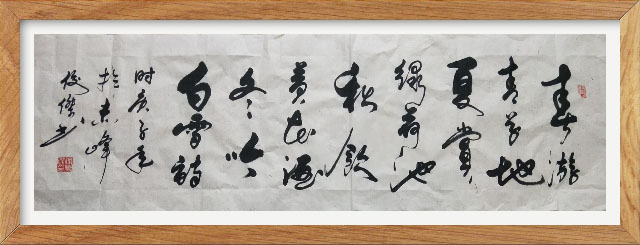 春游
青草地
夏赏
绿荷池
秋饮
黄花酒
冬吟
白雪詩
时庚子年
於赤峰
俊傑书